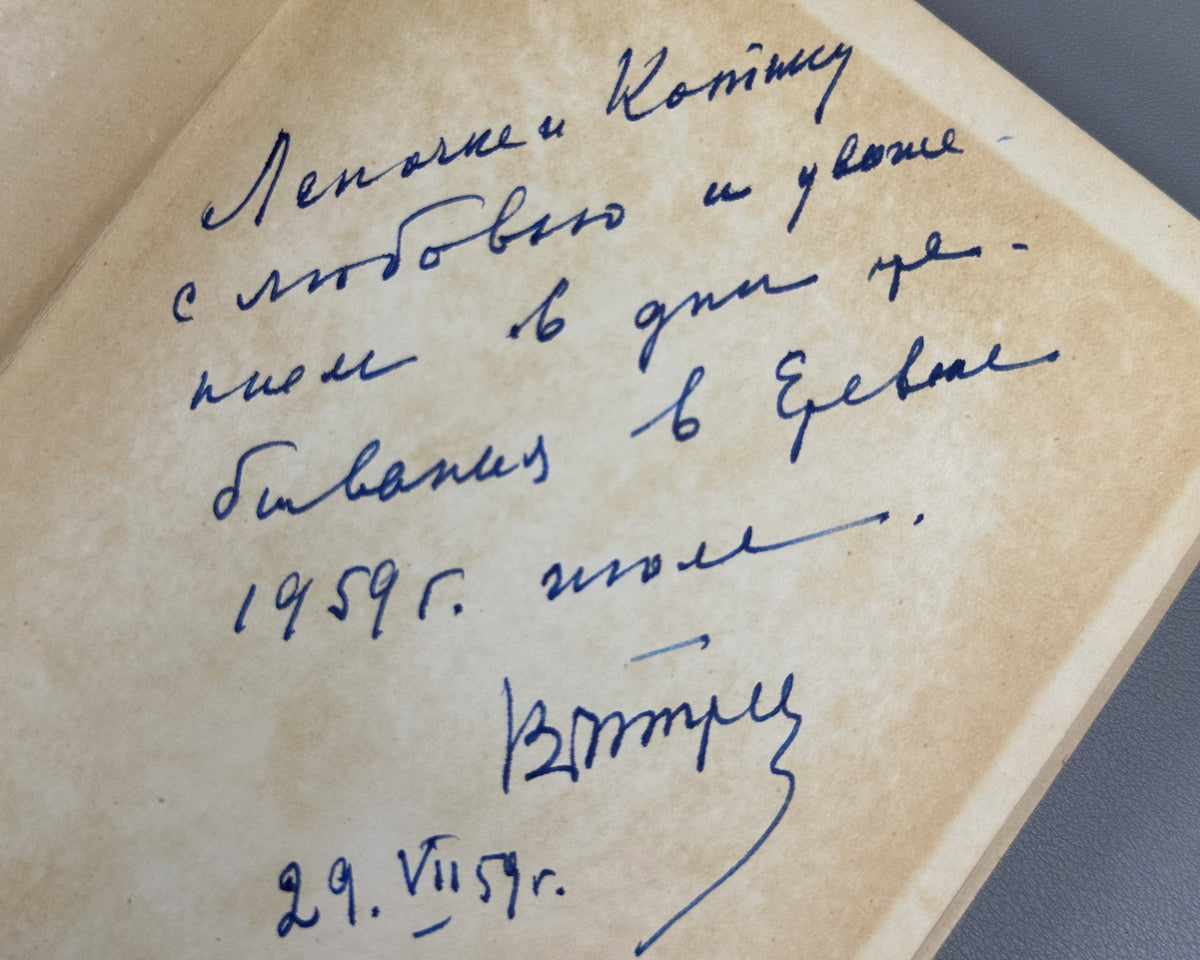 Леночке и Котику
с любовью и уваже-
нием в дни пре-
бывания в Ереване
1959 г. июле.
29. VII 59 г.